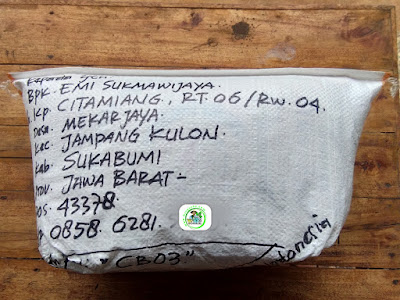 BPK. EMI SUKMAWIJAYA.
KP. CITAMIANG, RT. 06/RW. 04.
Desa. MEKARJAYA.
Kec. JAMPANG KULON.
Kab. SUKABUMI
Prov. JAWA BARAT-
43378
0858. 6281.
"CB03"